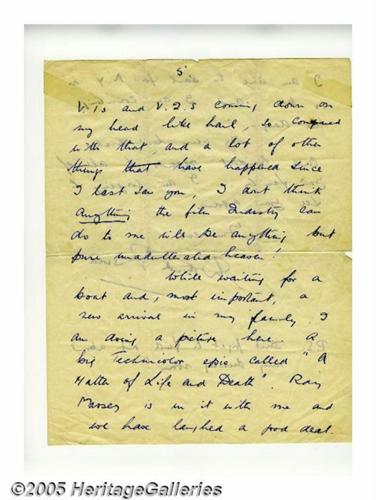 5
V.1s and V.2s coming down on
my head like hail, so compared
with that and a lot of other
things that have happened since
I last saw you, I dont think
anything the film industry can
do to me will be anything but
pure unadulterated heaven!
While waiting for a
boat and, most important, a
new arrival in my family I
am doing a picture here a
big Technicolor epic called "A
Matter of Life and Death". Ray
Massey is in it with me and
we have laughed a good deal.
©2005 HeritageGalleries